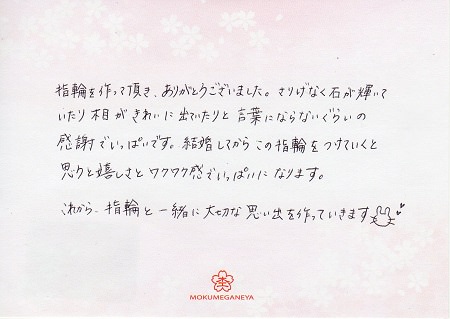 指輪を作って頂き、ありがとうございました。さりげなく石が輝いて
いたり木目がきれいに出ていたりと言葉にならないぐらいの
感謝でいっぱいです。結婚してからこの指輪をつけていくと
思うと嬉しさとワクワク感でいっぱいになります。
これから、指輪と一緒に大切な思い出を作っていきます
MOKUMEGANEYA